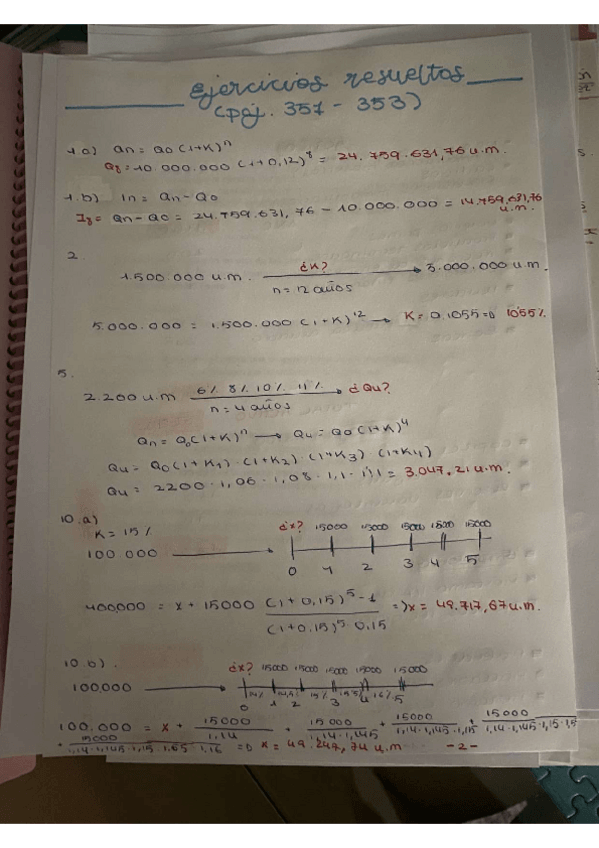 ejercicios resueltos
(paj. 351 - 353)
1 a) Qn = Q0 (1+K)^n
Q8 = 10.000.000 (1+0,12)^8 = 24.759.631,76 u.m.
1.b) In = Qn - Q0
I8 = Qn - Q0 = 24.759.631,76 - 10.000.000 = 14.759.631,76 u.m.
2.
1.500.000 u.m. ¿K? 5.000.000 u.m.
n = 12 años
5.000.000 = 1.500.000 (1+K)^12 → K = 0,1055 => 10'55%
5.
2.200 u.m 6% 8% 10% 11% ¿Q4?
n = 4 años
Qn = Q0(1+K)^n → Q4 = Q0(1+K)^4
Q4 = Q0(1+K1)·(1+K2)·(1+K3)·(1+K4)
Q4 = 2200·1,06·1,08·1,1·1'11 = 3.047,21 u.m.
10.a)
K = 15% ¿x? 15000 15000 15000 1500 15000
100 000
0 1 2 3 4 5
400,000 = x + 15000 (1+0,15)^5 - 1 => x = 49.717,67 u.m.
(1+0,15)^5 · 0,15
10.b).
¿x? 15000 15000 15000 15000 15000
100,000
14% 14,5% 15% 15'5% 16%
0 1 2 3 4 5
100.000 = x + 15000 + 15 000 + 15000 + 15000
1,14 1,14·1,145 1,14·1,145·1,15 1,14·1,145·1,15·1,5
+ 15000
1,14·1,145·1,15·1,65·1,16 => x = 49.247,74 u.m -2-